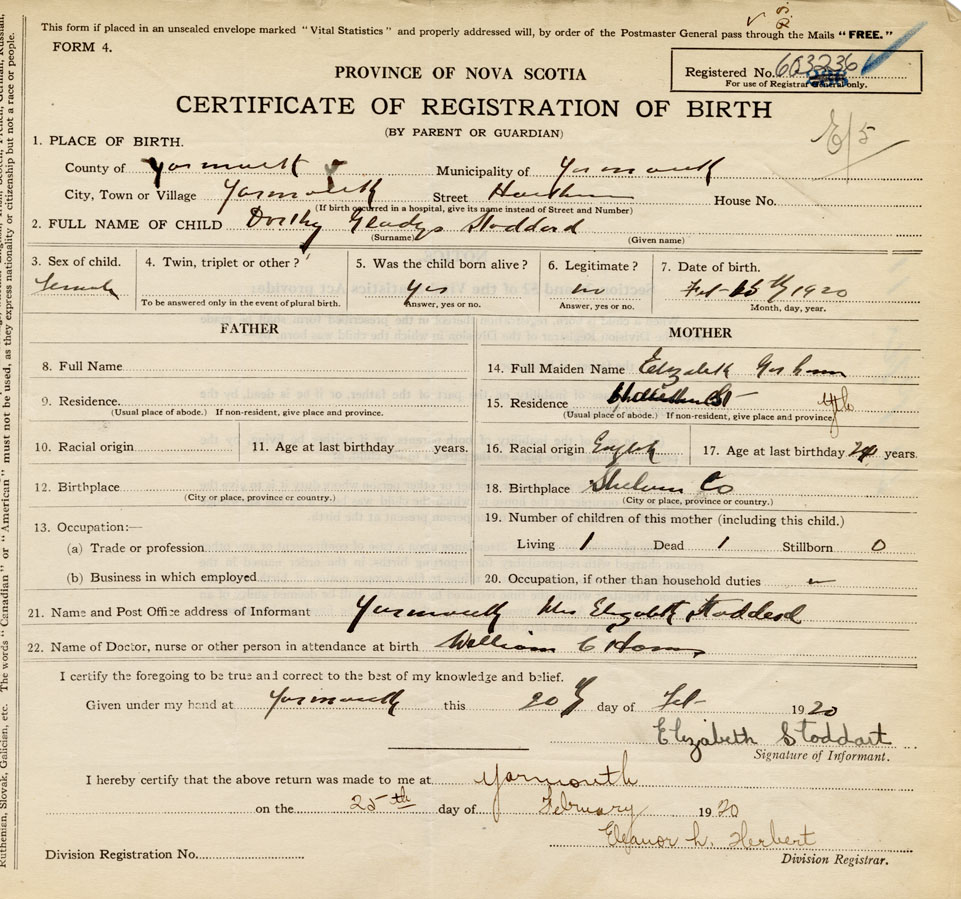 This form if placed in an unsealed envelope marked "Vital Statistics" and properly addressed will, by order of the Postmaster General pass through the Mails "FREE."
FORM 4.
PROVINCE OF NOVA SCOTIA
Registered No. 603236
For use of Registrar General only.
CERTIFICATE OF REGISTRATION OF BIRTH
(BY PARENT OR GUARDIAN)
1. PLACE OF BIRTH.
County of Yarmouth Municipality of Yarmouth
City, Town or Village Yarmouth Street House No.
(If birth occurred in a hospital, give its name instead of Street and Number)
2. FULL NAME OF CHILD Dorothy Gladys Stoddard
(Surname) (Given name)
3. Sex of child. 4. Twin, triplet or other? 5. Was the child born alive? 6. Legitimate? 7. Date of birth.
Female Yes no Feb 15th 1920
To be answered only in the event of plural birth. Answer, yes or no. Answer, yes or no. Month, day, year.
FATHER MOTHER
8. Full Name 14. Full Maiden Name Elizabeth Gorham
9. Residence. 15. Residence
(Usual place of abode.) If non-resident, give place and province. (Usual place of abode.) If non-resident, give place and province.
10. Racial origin 11. Age at last birthday years. 16. Racial origin English 17. Age at last birthday 24 years.
12. Birthplace 18. Birthplace Co
(City or place, province or country.) (City or place, province or country.)
13. Occupation:— 19. Number of children of this mother (including this child.)
(a) Trade or profession Living 1 Dead 1 Stillborn 0
(b) Business in which employed 20. Occupation, if other than household duties
21. Name and Post Office address of Informant Yarmouth Mrs Elizabeth Stoddard
22. Name of Doctor, nurse or other person in attendance at birth William C
I certify the foregoing to be true and correct to the best of my knowledge and belief.
Given under my hand at Yarmouth this 20th day of Feb 1920
Elizabeth Stoddart
Signature of Informant.
I hereby certify that the above return was made to me at Yarmouth
on the 25th day of February 1920
Eleanor L. Herbert
Division Registrar.
Division Registration No.
Ruthenian, Slovak, Galician, etc. The words "Canadian" or "American" must not be used, as they express nationality or citizenship but not a race or people.